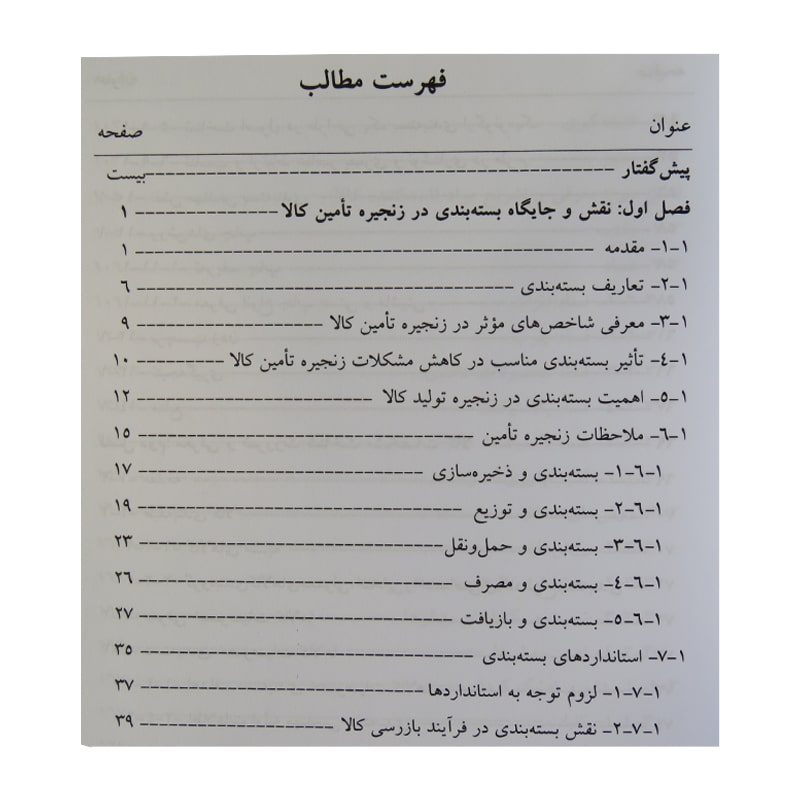 فهرست مطالب
عنوان صفحه
پیش‌گفتار ------------ بیست
فصل اول: نقش و جایگاه بسته‌بندی در زنجیره تأمین کالا ------------ ۱
۱-۱- مقدمه ------------ ۱
۱-۲- تعاریف بسته‌بندی ------------ ۶
۱-۳- معرفی شاخص‌های مؤثر در زنجیره تأمین کالا ------------ ۹
۱-۴- تأثیر بسته‌بندی مناسب در کاهش مشکلات زنجیره تأمین کالا ------------ ۱۰
۱-۵- اهمیت بسته‌بندی در زنجیره تولید کالا ------------ ۱۲
۱-۶- ملاحظات زنجیره تأمین ------------ ۱۵
۱-۶-۱- بسته‌بندی و ذخیره‌سازی ------------ ۱۷
۱-۶-۲- بسته‌بندی و توزیع ------------ ۱۹
۱-۶-۳- بسته‌بندی و حمل‌ونقل ------------ ۲۳
۱-۶-۴- بسته‌بندی و مصرف ------------ ۲۶
۱-۶-۵- بسته‌بندی و بازیافت ------------ ۲۷
۱-۷- استانداردهای بسته‌بندی ------------ ۳۵
۱-۷-۱- لزوم توجه به استانداردها ------------ ۳۷
۱-۷-۲- نقش بسته‌بندی در فرآیند بازرسی کالا ------------ ۳۹